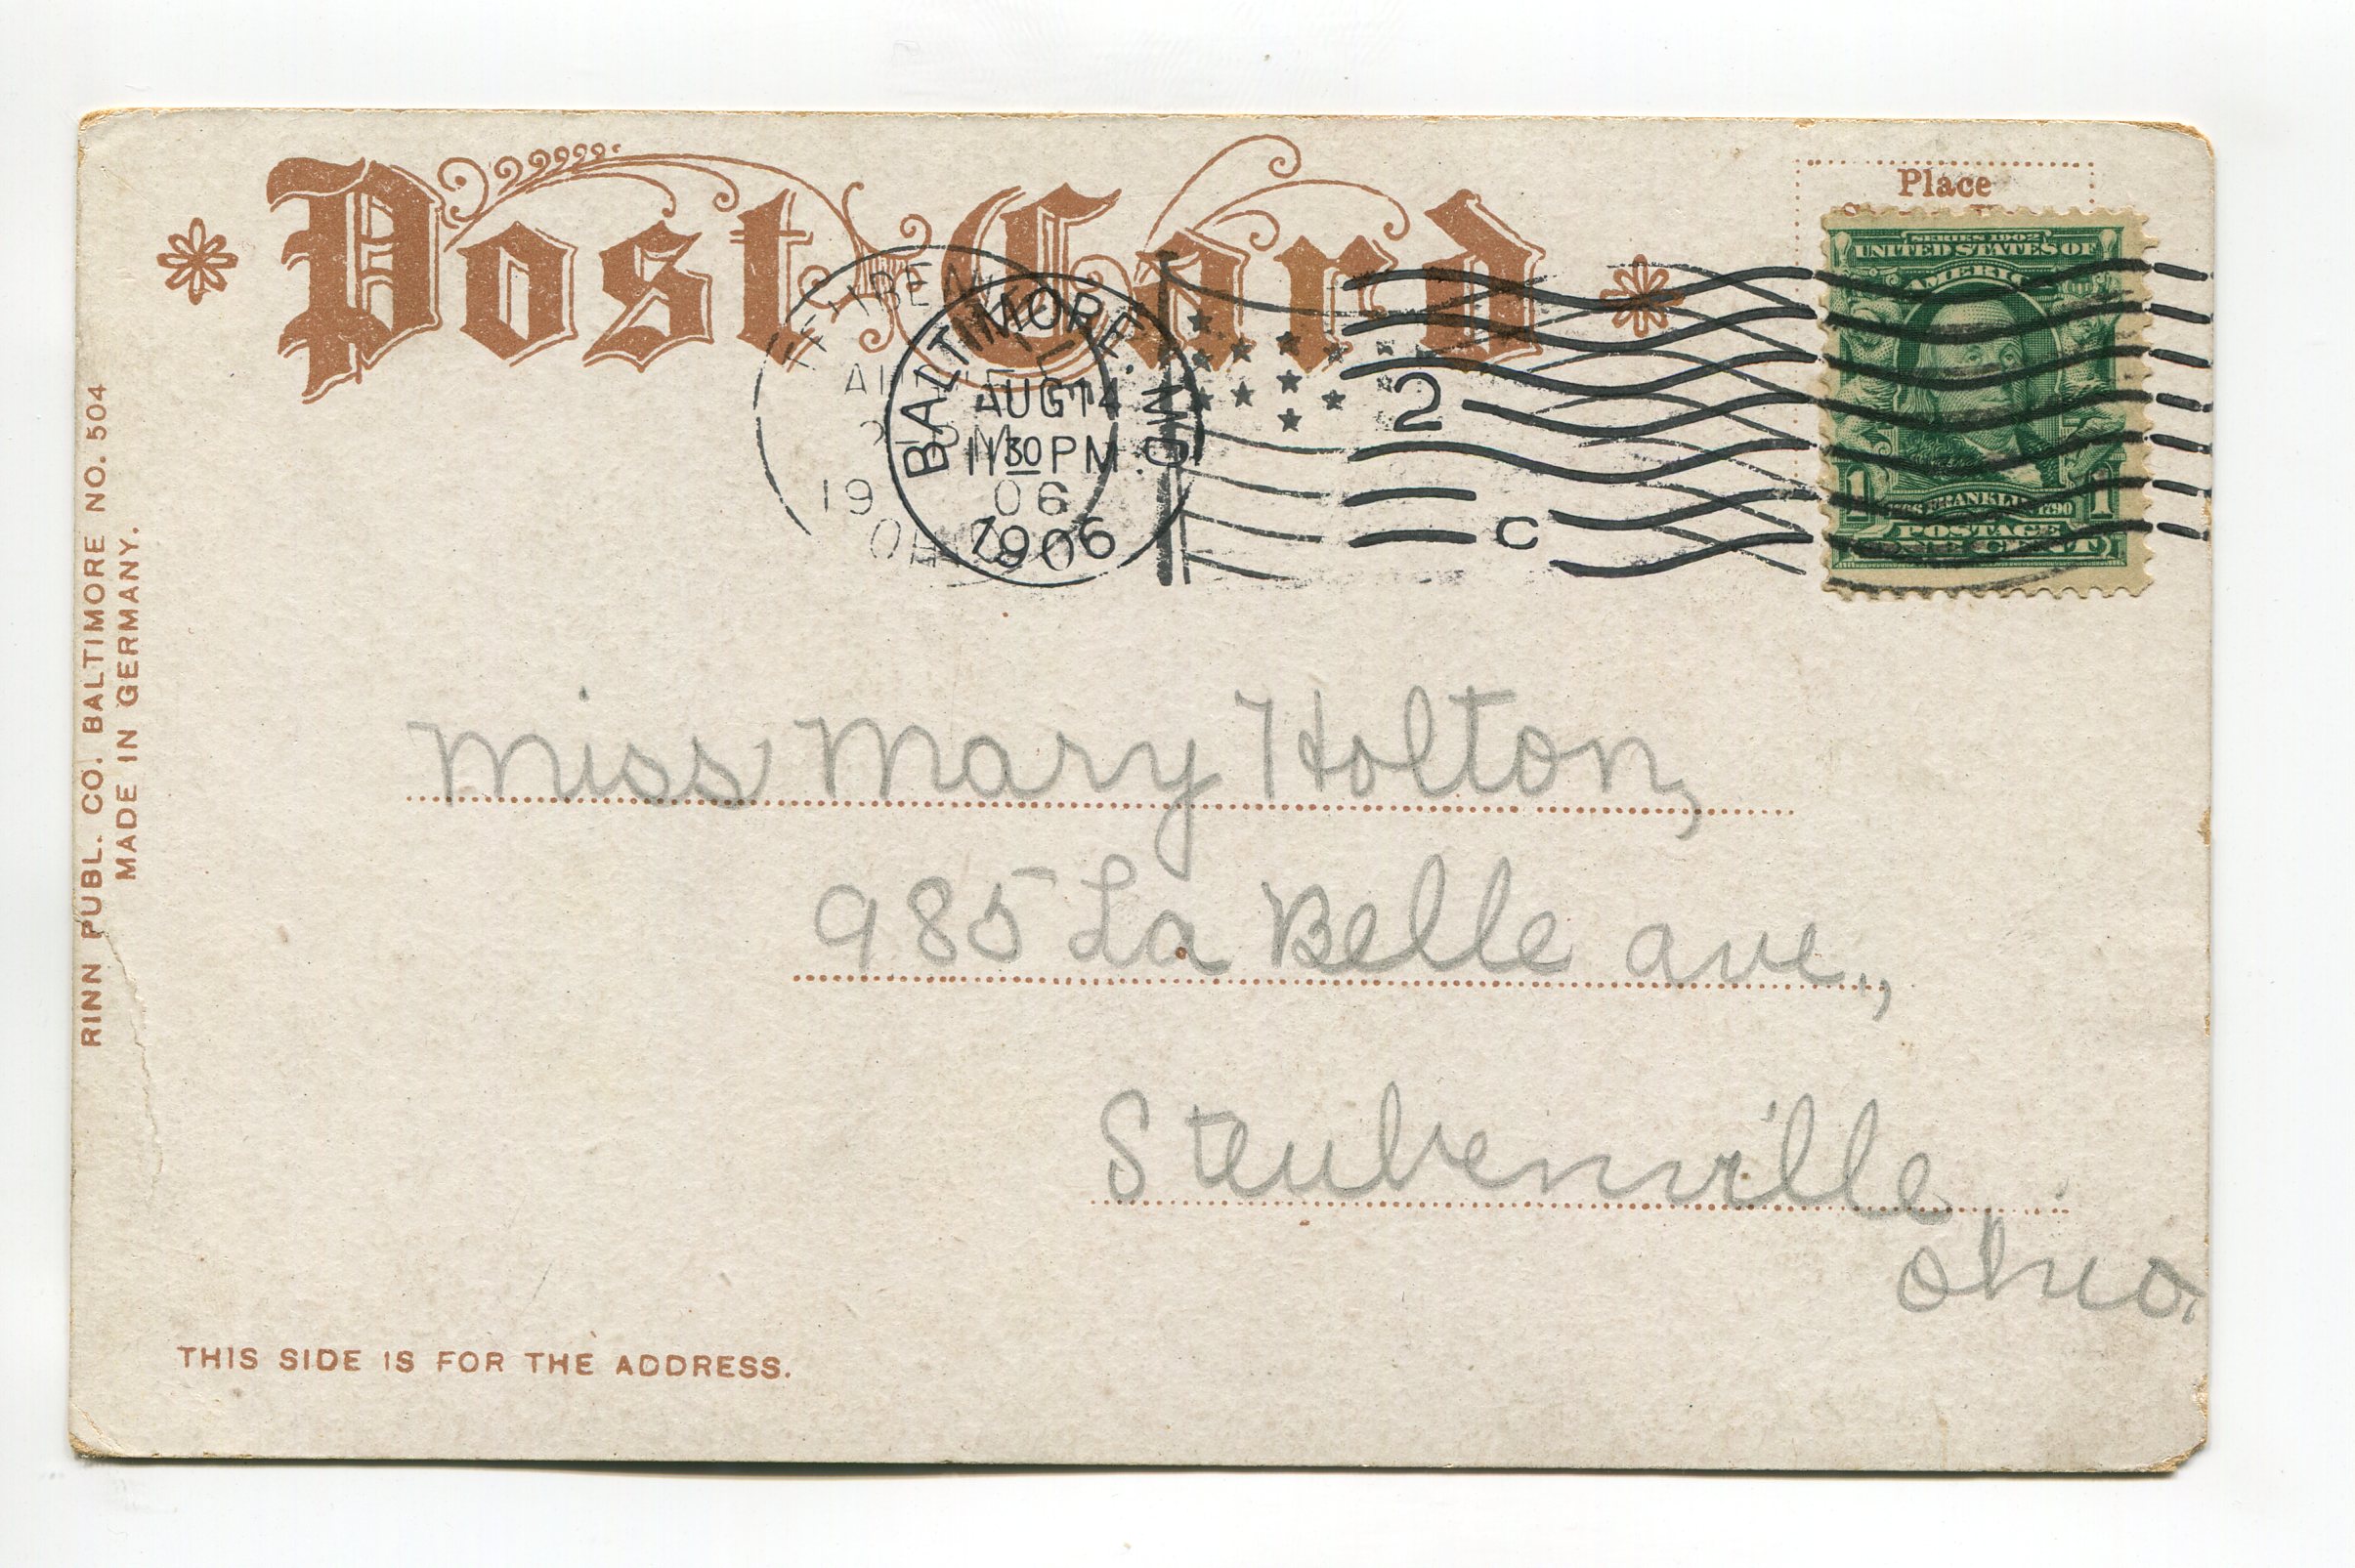 Post Card
Place
SERIES 1902
UNITED STATES OF
AMERICA
1 FRANKLIN 1790 1
POSTAGE
ONE CENT
BALTIMORE, MD.
AUG 14
11 30 PM
1906
2
C
19 06
RINN PUBL. CO. BALTIMORE NO. 504
MADE IN GERMANY.
Miss Mary Holton,
985 La Belle ave.,
Steubenville
Ohio.
THIS SIDE IS FOR THE ADDRESS.